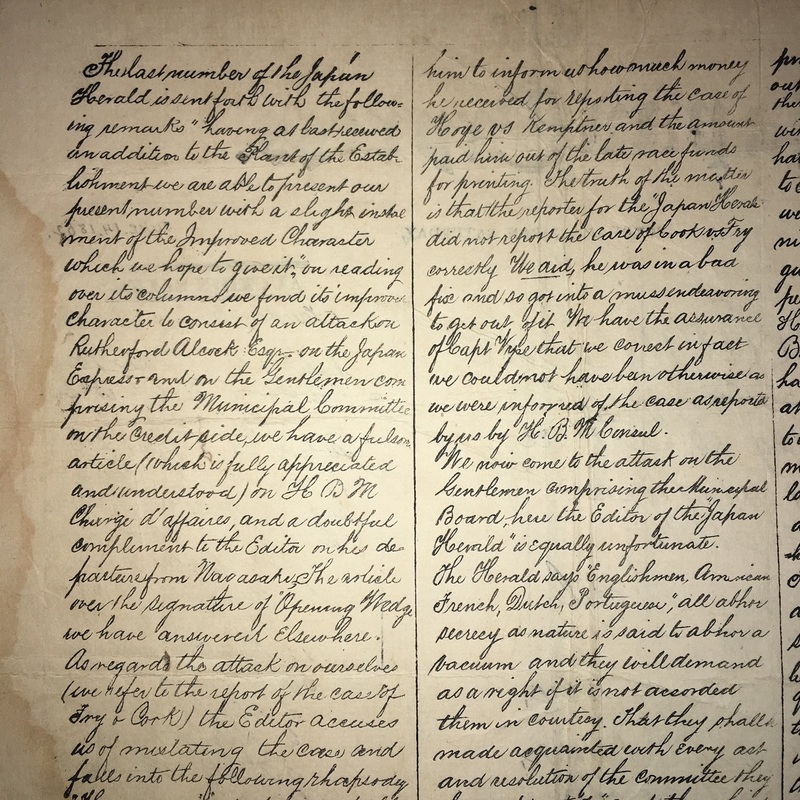 The last number of the Japan
Herald is sent forth with the follow-
ing remarks "having at last received
an addition to the Plant of the Estab-
lishment we are able to present our
present number with a slight instal
ment of the Improved Character
which we hope to give it," on reading
over its columns we find its improve
character to consist of an attack on
Rutherford Alcock Esqr. on the Japan
Express and on the Gentlemen com
prising the Municipal Committee
on the credit side, we have a fulsom
article (which is fully appreciated
and understood) on H B M
Chargé d'affaires, and a doubtful
compliment to the Editor on his de-
parture from Nagasaki. The article
over the signature of "Opening Wedge
we have answered Elsewhere.
As regards the attack on ourselves
(we refer to the report of the case of
Fry v Cook) the Editor accuses
us of mistating the case and
falls into the following rhapsody
him to inform us how much money
he received for reporting the case of
Hoye vs Kemptner and the amount
paid him out of the late race funds
for printing. The truth of the matter
is that the reporter for the "Japan Herald
did not report the case of Cook vs. Fry
correctly We aid, he was in a bad
fix and so got into a muss endeavoring
to get out of it We have the assurance
of Capt Vyse that we correct in fact
we could not have been otherwise as
we were informed of the case as reporte
by us by H. B. M Consul.
We now come to the attack on the
Gentlemen comprising the Municipal
Board, here the Editor of the "Japan
Herald" is equally unfortunate.
The Herald says "Englishmen, American
French, Dutch, Portuguese", all abhor
secrecy as nature is said to abhor a
vacuum and they will demand
as a right if it is not accorded
them in courtesy. That they shall
made acquainted with every act
and resolution of the committee they